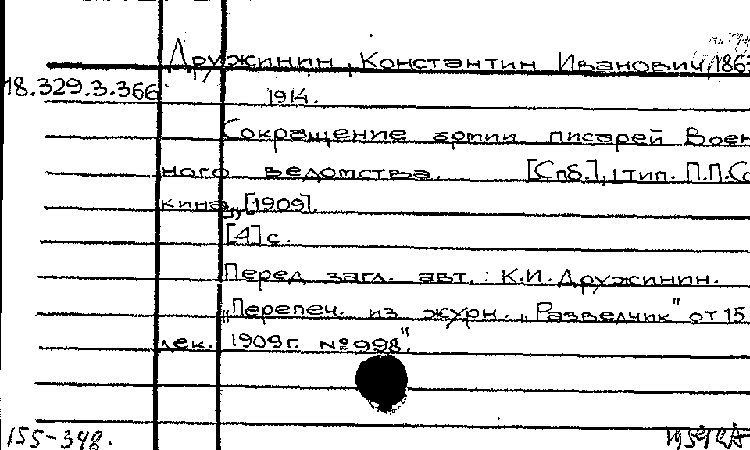 Дружинин, Константин Иванович, 1863
18.329.3.366
1914.
Сокращение армии писарей Воен
ного ведомства. [Спб.], тип. П.П.Со
кина, [1909].
[4] с.
Перед загл. авт.: К.И. Дружинин.
„Перепеч. из журн. „Разведчик" от 15
дек. 1909 г. №998".
155-348.